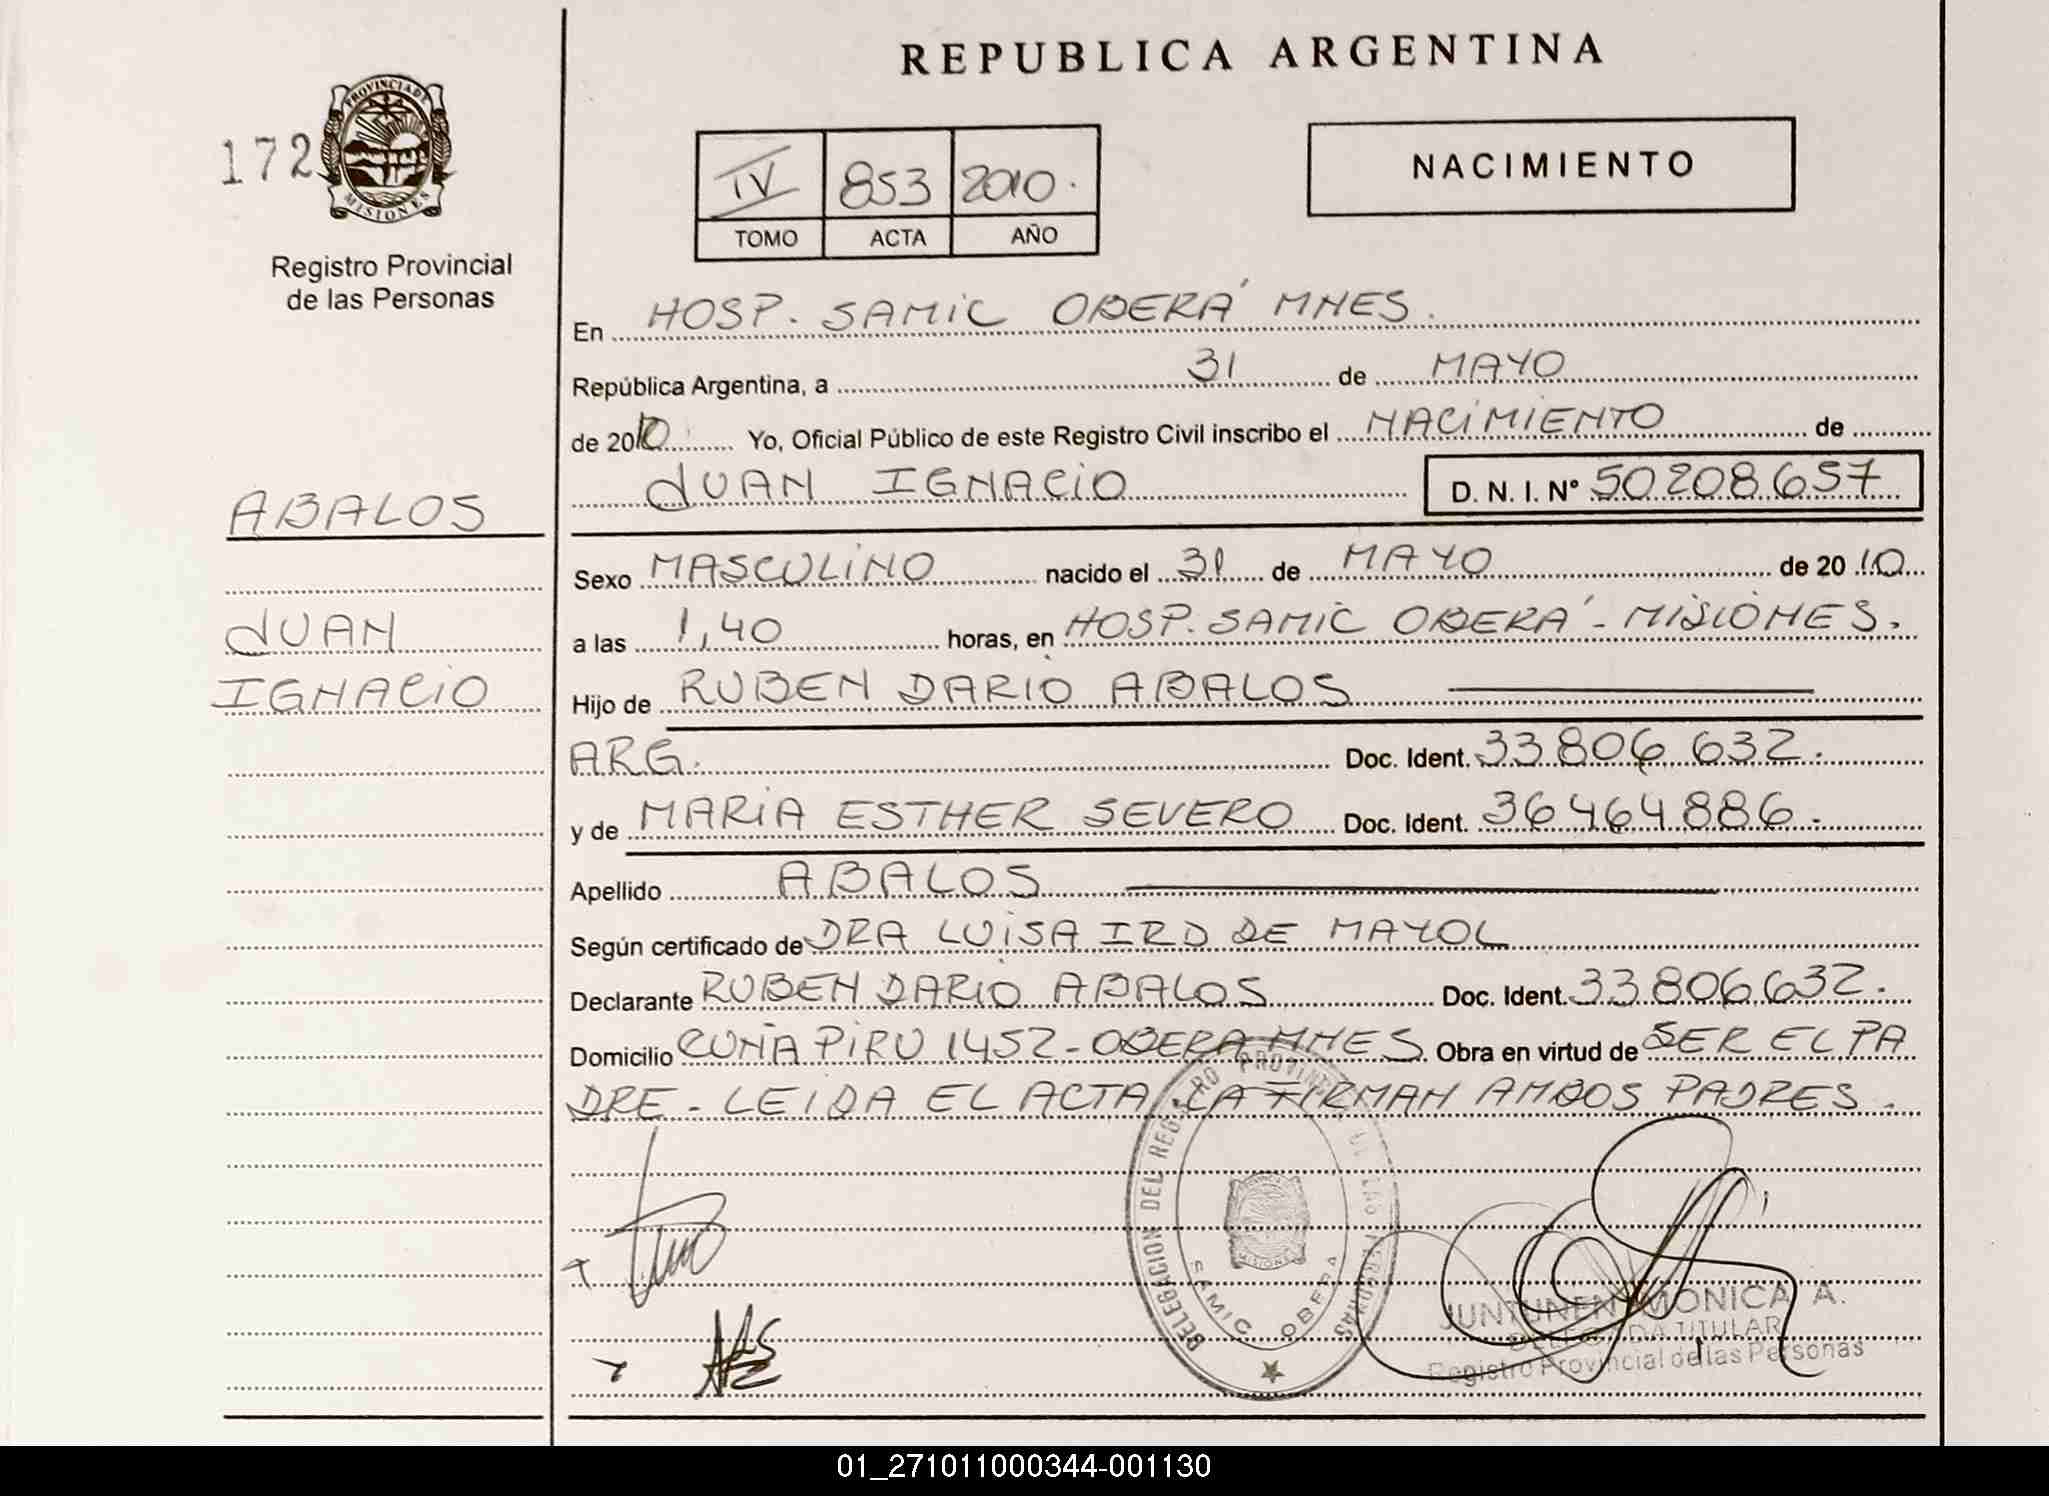 REPUBLICA ARGENTINA
PROVINCIA DE
MISIONES
172
Registro Provincial
de las Personas
IV 853 2010.
TOMO ACTA AÑO
NACIMIENTO
En HOSP. SAMIC OBERÁ MNES.
República Argentina, a 31 de MAYO
de 2010 Yo, Oficial Público de este Registro Civil inscribo el NACIMIENTO de
JUAN IGNACIO D. N. I. Nº 50208657
ABALOS
JUAN
IGNACIO
Sexo MASCULINO nacido el 31 de MAYO de 20 10
a las 1,40 horas, en HOSP. SAMIC OBERÁ - MISIONES.
Hijo de RUBEN DARIO ABALOS
ARG. Doc. Ident. 33806632.
y de MARIA ESTHER SEVERO Doc. Ident. 36464886.
Apellido ABALOS
Según certificado de DRA LUISA IRD DE MAYOL
Declarante RUBEN DARIO ABALOS Doc. Ident. 33806632.
Domicilio CUÑA PIRU 1452 - OBERA MNES Obra en virtud de SER EL PA
DRE - LEIDA EL ACTA LA FIRMAN AMBOS PADRES.
DELEGACION DEL REGISTRO PROVINCIAL DE LAS PERSONAS
SAMIC OBERA
MISIONES
JUNTUNEN MONICA A.
DELEGADA TITULAR
Registro Provincial de las Personas
01_271011000344-001130